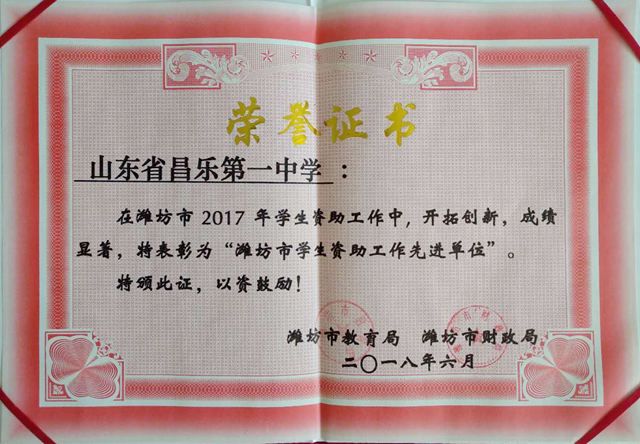 荣誉证书
山东省昌乐第一中学：
在潍坊市 2017 年学生资助工作中，开拓创新，成绩
显著，特表彰为“潍坊市学生资助工作先进单位”。
特颁此证，以资鼓励！
潍坊市教育局 潍坊市财政局
二〇一八年六月